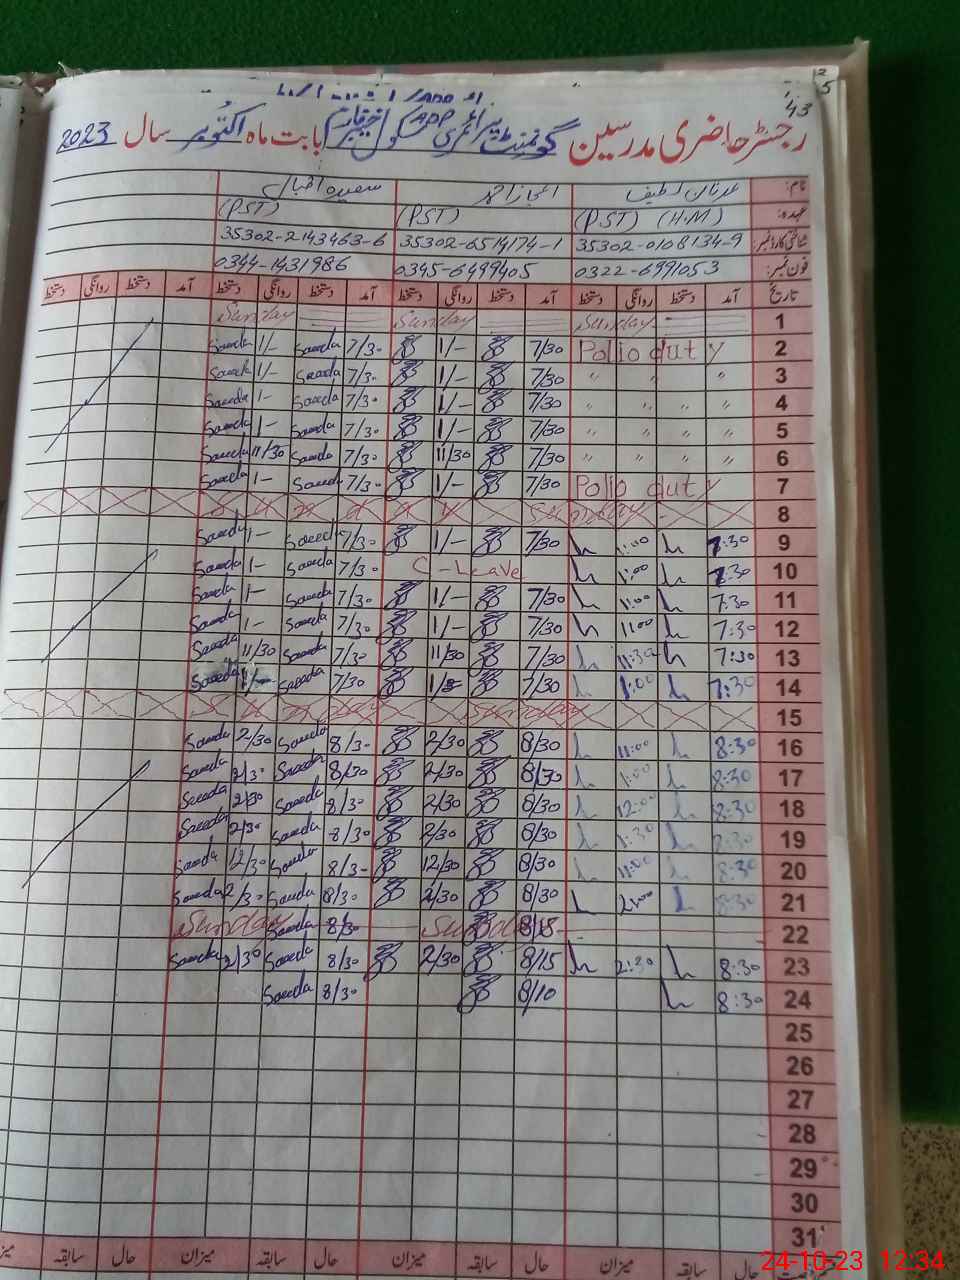 43
رجسٹر حاضری مدرسین گورنمنٹ پرائمری سکول بابت ماہ اکتوبر سال 2023
نام: عدنان لطیف اعجاز احمد سعیدہ اقبال
عہدہ: (PST) (H.M) (PST) (PST)
شناختی کارڈ نمبر: 35302-0108134-9 35302-6514174-1 35302-2143463-6
فون نمبر: 0322-6991053 0345-6499405 0344-1431986
تاریخ آمد دستخط روانگی دستخط آمد دستخط روانگی دستخط آمد دستخط روانگی دستخط آمد دستخط روانگی دستخط
Sunday Sunday Sunday 1
Saeeda 1/- Saeeda 7/30 1/- 7/30 Polio duty 2
Saeeda 1/- Saeeda 7/30 1/- 7/30 " " " " 3
Saeeda 1- Saeeda 7/30 1/- 7/30 " " " " 4
Saeeda 1- Saeeda 7/30 1/- 7/30 " " " " 5
Saeeda 11/30 Saeeda 7/30 11/30 7/30 " " " " 6
Saeeda 1- Saeeda 7/30 1/- 7/30 Polio duty 7
Sunday Sunday 8
Saeeda 1- Saeeda 7/30 1/- 7/30 1:00 7:30 9
Saeeda 1- Saeeda 7/30 C-Leave 1:00 7:30 10
Saeeda 1- Saeeda 7/30 1/- 7/30 11:00 7:30 11
Saeeda 1- Saeeda 7/30 1/- 7/30 11:00 7:30 12
Saeeda 11/30 Saeeda 7/30 11/30 7/30 11:30 7:30 13
Saeeda 1/- Saeeda 7/30 7/30 1:00 7:30 14
Sunday Sunday 15
Saeeda 2/30 Saeeda 8/30 2/30 8/30 11:00 8:30 16
Saeeda 2/30 Saeeda 8/30 2/30 8/30 1:00 8:30 17
Saeeda 2/30 Saeeda 8/30 2/30 8/30 12:00 8:30 18
Saeeda 2/30 Saeeda 8/30 2/30 8/30 1:30 8:30 19
Saeeda 12/30 Saeeda 8/30 12/30 8/30 11:00 8:30 20
Saeeda 2/30 Saeeda 8/30 2/30 8/30 2:00 8:30 21
Sunday Saeeda 8/30 Sunday 22
Saeeda 2/30 Saeeda 8/30 2/30 8/15 2:30 8:30 23
Saeeda 8/30 8/10 8:30 24
25
26
27
28
29
30
31
حال سابقہ میزان حال سابقہ میزان حال سابقہ میزان حال سابقہ
24-10-23 12:34